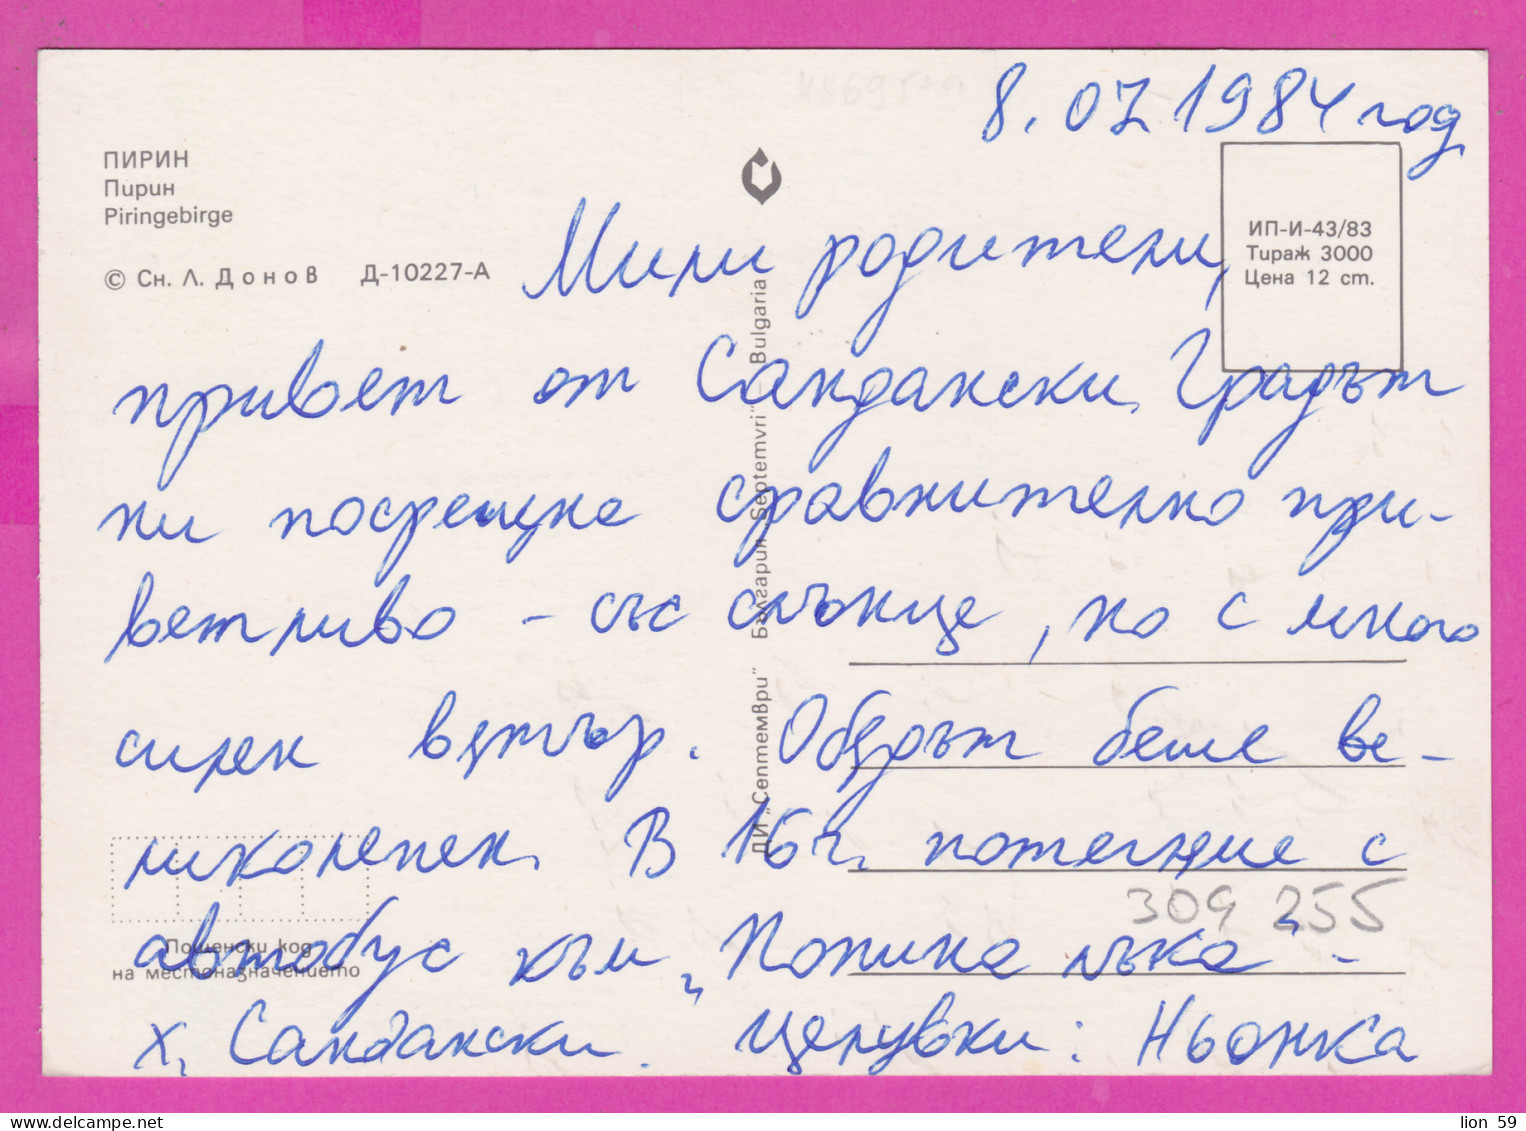 8.07.1984 год
ПИРИН
Пирин
Piringebirge
© Сн. Л. Донов Д-10227-А
ИП-И-43/83
Тираж 3000
Цена 12 ст.
Мили родители,
привет от Сандански. Градът
ни посрещна сравнително при-
ветливо - със слънце, но с много
силен вятър. Обядът беше ве-
ликолепен. В 16 ч. потегляме с
автобус към „Попина лъка" -
х. Сандански. Целувки: Ньонка
ДИ „Септември" България „Septemvri" – Bulgaria
Пощенски код
на местоназначението
309 255
lion 59